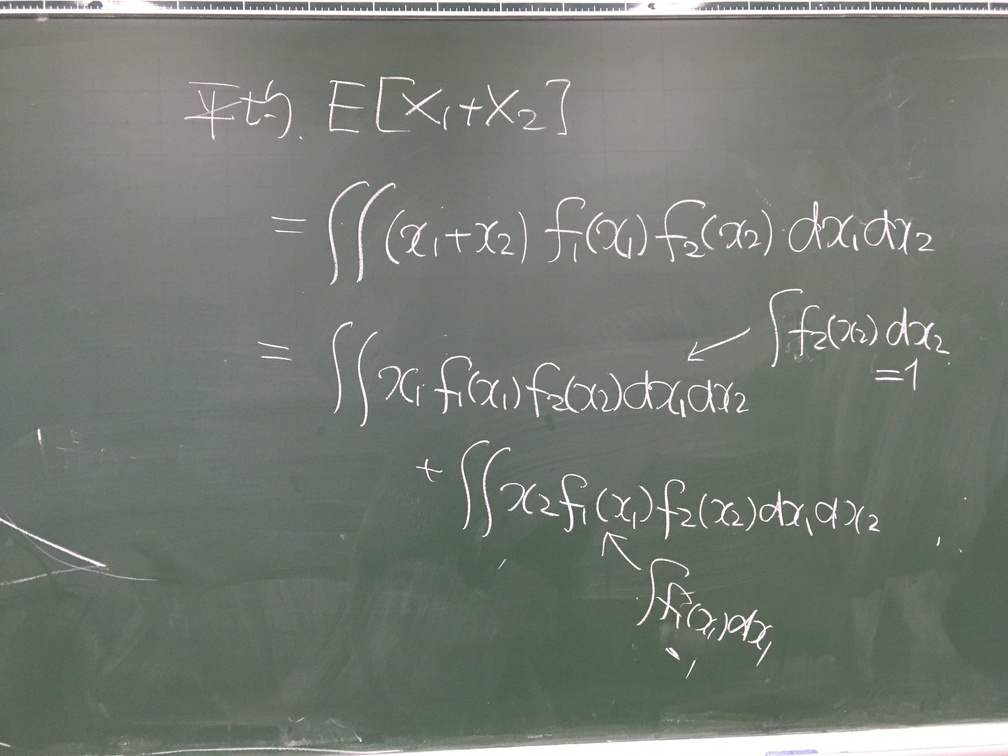 平均. E[X₁+X₂]
= ∬(x₁+x₂) f₁(x₁) f₂(x₂) dx₁dx₂
= ∬x₁ f₁(x₁) f₂(x₂)dx₁dx₂ ← ∫f₂(x₂)dx₂
=1
+ ∬x₂f₁(x₁)f₂(x₂)dx₁dx₂
↖ ∫f₁(x₁)dx₁